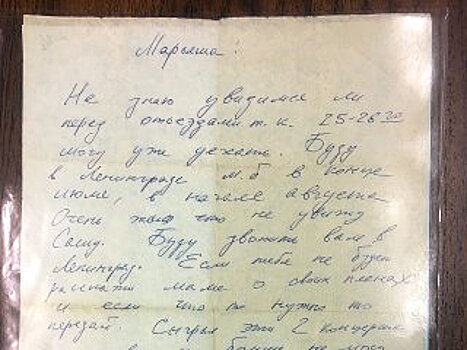 Марьяша!
Не знаю увидимся ли
перед отъездами т.к. 25-26го
могу уже уехать. Буду
в Ленинграде м.б в конце
июля, в начале августа
Очень жаль что не увижу
Сашу. Буду звонить вам в
Ленинград. Если тебя не будет
расскажи маме о своих планах
и если что то нужно то
передай. Сыграл эти 2 концерта
в больше не